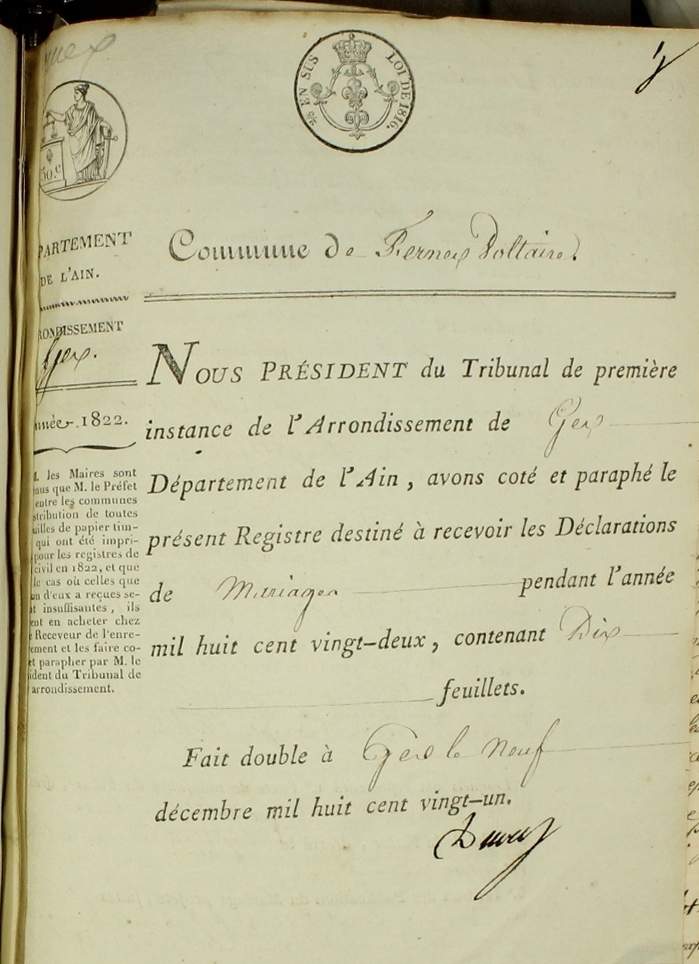 Gex
EN SUS LOI DE 1816.
50. c
PARTEMENT
DE L'AIN.
RONDISSEMENT
Gex.
nnée 1822.
M. les Maires sont
nus que M. le Préfet
entre les communes
stribution de toutes
uilles de papier tim-
qui ont été impri-
pour les registres de
civil en 1822, et que
le cas où celles que
un d'eux a reçues se-
t insuffisantes, ils
ent en acheter chez
e Receveur de l'enre-
ement et les faire co-
et parapher par M. le
ident du Tribunal de
arrondissement.
Commune de Fernex Voltaire.
NOUS PRÉSIDENT du Tribunal de première
instance de l'Arrondissement de Gex
Département de l'Ain, avons coté et paraphé le
présent Registre destiné à recevoir les Déclarations
de Mariages pendant l'année
mil huit cent vingt-deux, contenant Dix
feuillets.
Fait double à Gex le Neuf
décembre mil huit cent vingt-un.